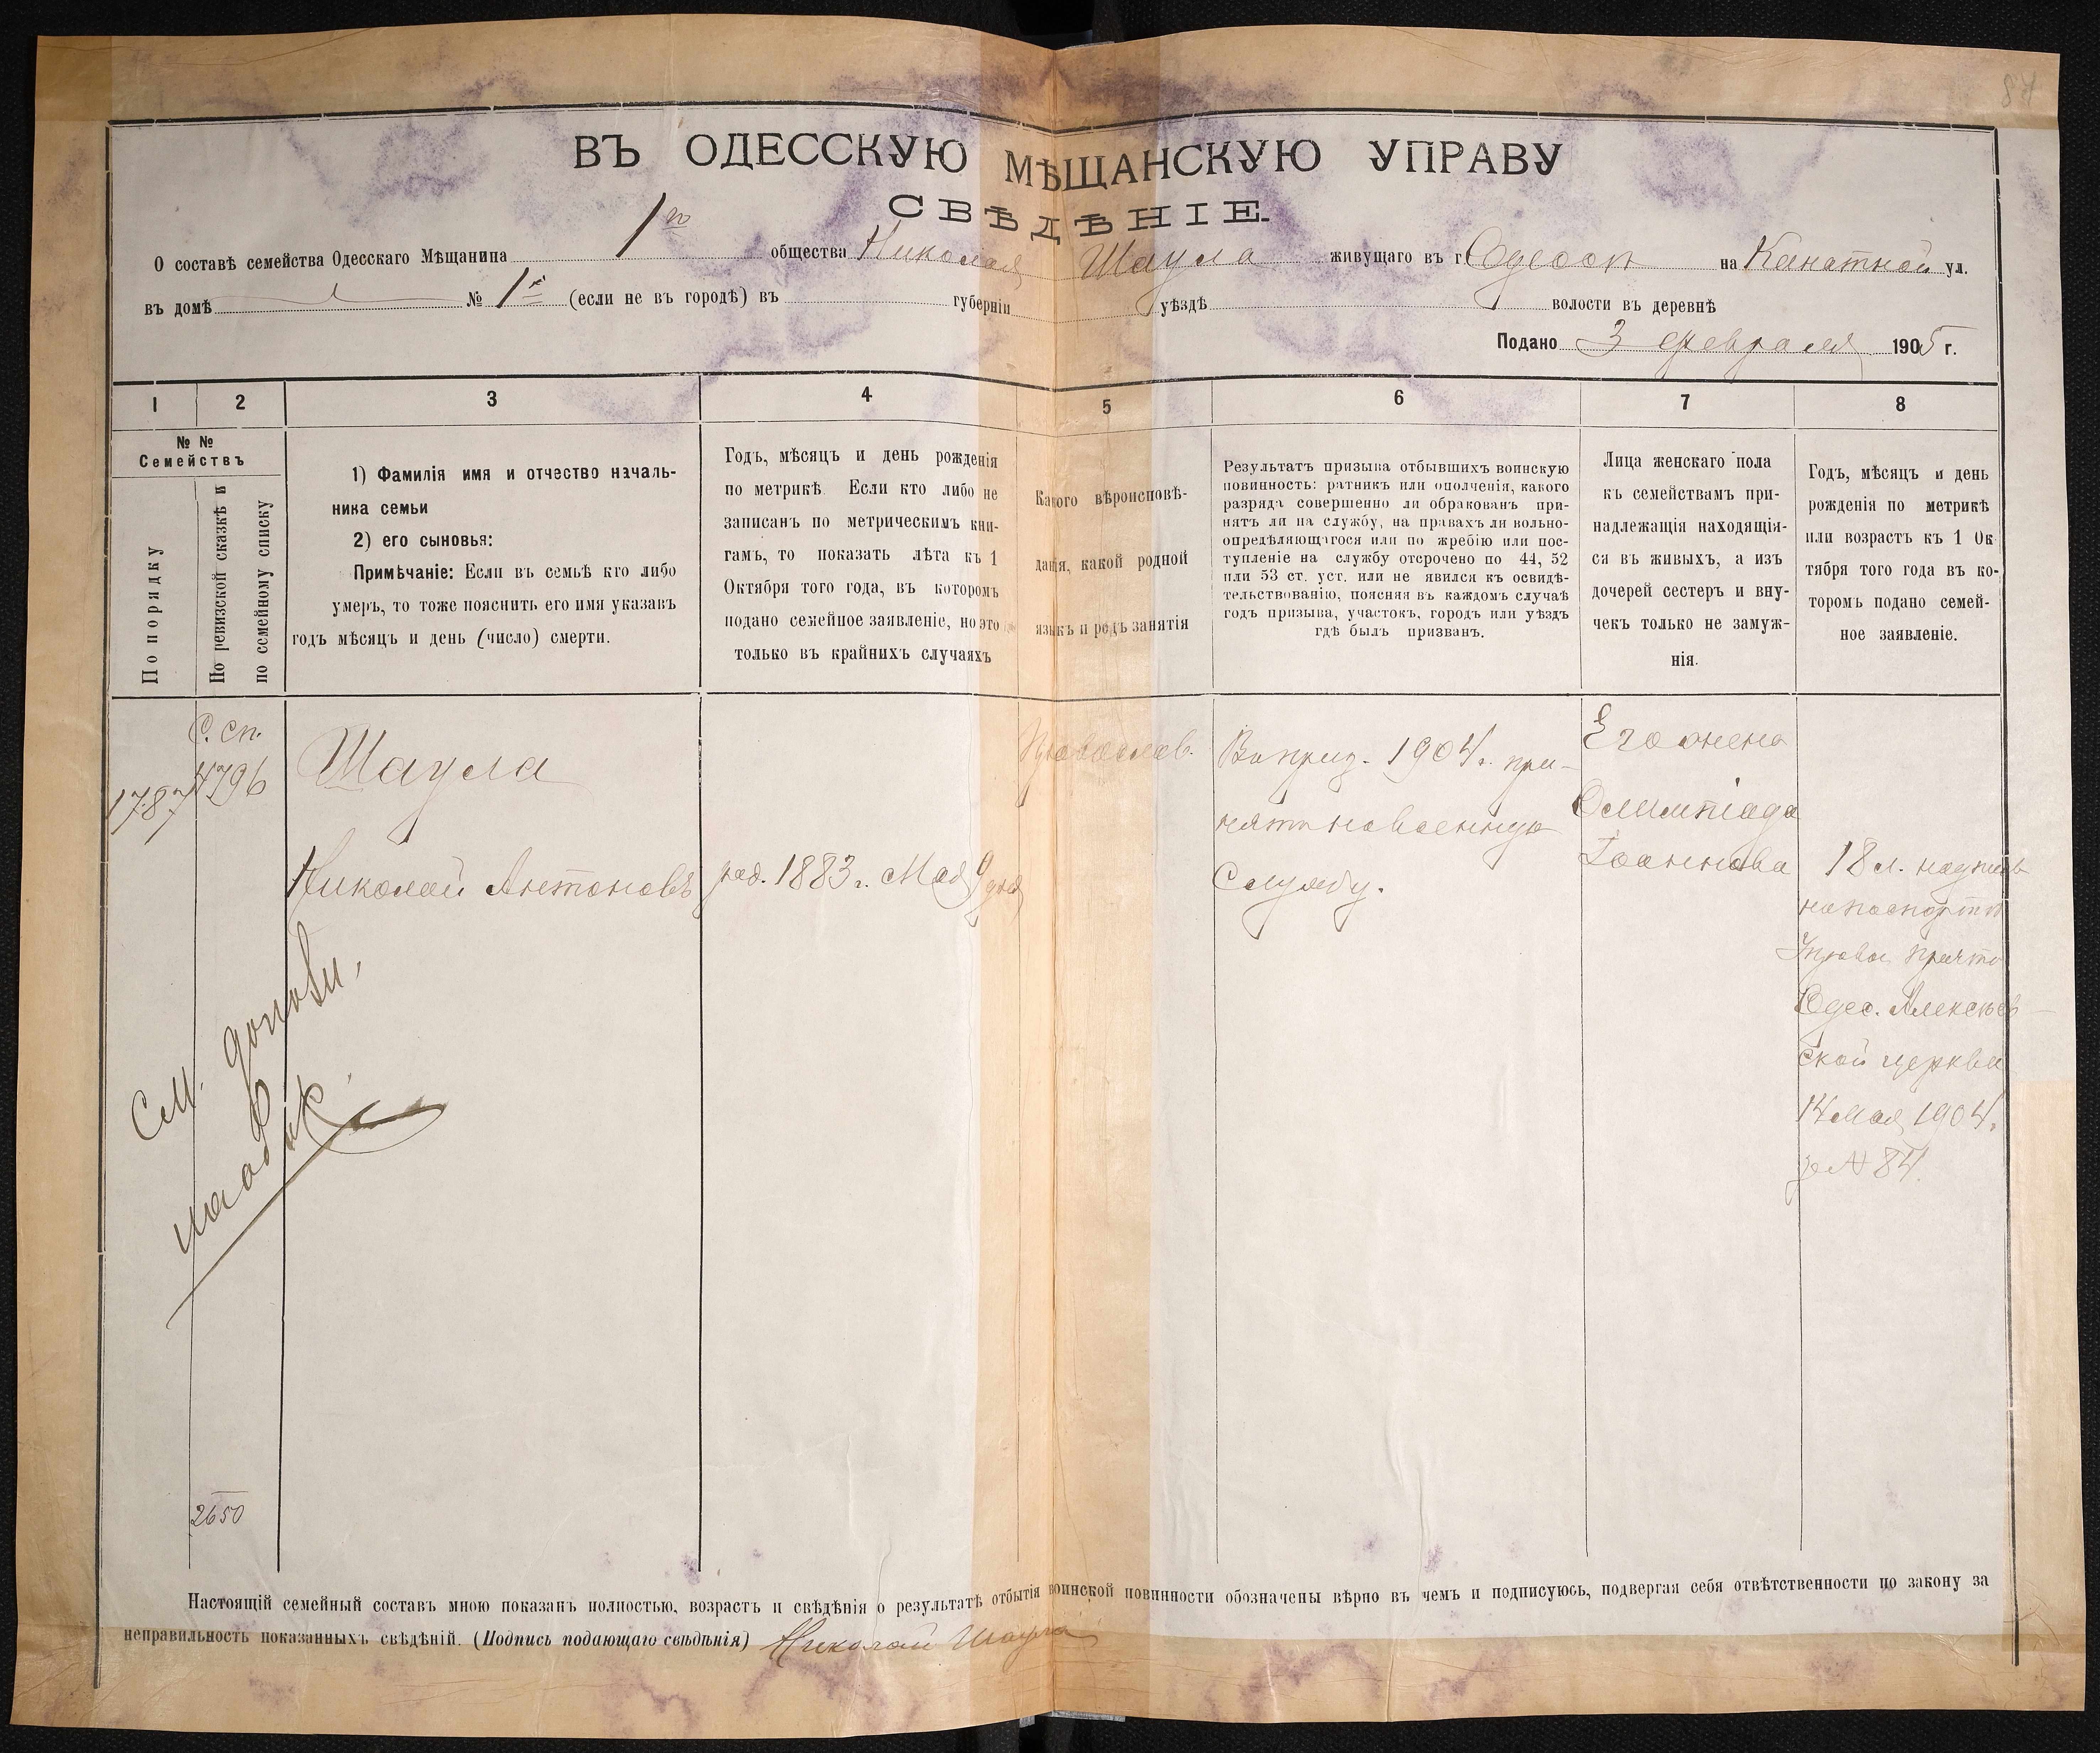 ВЪ ОДЕССКУЮ МѢЩАНСКУЮ УПРАВУ
СВѢДѢНІЕ.
О составѣ семейства Одесскаго Мѣщанина 1го общества Николая Шаула живущаго въ г. Одессѣ на Канатной ул.
въ домѣ № 1й (если не въ городѣ) въ губерніи уѣздѣ волости въ деревнѣ
Подано 3 февраля 1905 г.
1 2 3 4 5 6 7 8
№ №
Семействъ
По порядку
По ревизской сказкѣ и
по семейному списку
1) Фамилія имя и отчество началь-
ника семьи
2) его сыновья:
Примѣчаніе: Если въ семьѣ кто либо
умеръ, то тоже пояснить его имя указавъ
годъ мѣсяцъ и день (число) смерти.
Годъ, мѣсяцъ и день рожденія
по метрикѣ. Если кто либо не
записанъ по метрическимъ кни-
гамъ, то показать лѣта къ 1
Октября того года, въ которомъ
подано семейное заявленіе, но это
только въ крайнихъ случаяхъ
Какого вѣроисповѣ-
данія, какой родной
языкъ и родъ занятія
Результатъ призыва отбывшихъ воинскую
повинность: ратникъ или ополченія, какого
разряда совершенно ли обракованъ при-
нятъ ли на службу, на правахъ ли вольно-
опредѣляющагося или по жребію или пос-
тупленіе на службу отсрочено по 44, 52
или 53 ст. уст. или не явился къ освидѣ-
тельствованію, поясняя въ каждомъ случаѣ
годъ призыва, участокъ, городъ или уѣздъ
гдѣ былъ призванъ.
Лица женскаго пола
къ семействамъ при-
надлежащія находящія-
ся въ живыхъ, а изъ
дочерей сестеръ и вну-
чекъ только не замуж-
нія.
Годъ, мѣсяцъ и день
рожденія по метрикѣ
или возрастъ къ 1 Ок-
тября того года въ ко-
торомъ подано семей-
ное заявленіе.
1787
С. сп.
4796
Шаула
Николай Антоновъ
род. 1883 г. Мая 9 дня
Православ.
Въ приз. 1904 г. при-
нятъ на военную
службу.
Его жена
Олимпіада
Іоаннова
18 л. надпись
на паспортѣ
Управы причта
Одес. Алексѣев-
ской церкви
14 мая 1904 г.
за № 84
См.
на об.
2650
Настоящій семейный составъ мною показанъ полностью, возрастъ и свѣдѣнія о результатѣ отбытія воинской повинности обозначены вѣрно въ чемъ и подписуюсь, подвергая себя отвѣтственности по закону за
неправильность показанныхъ свѣдѣній. (Подпись подающаго свѣдѣнія) Николай Шаула